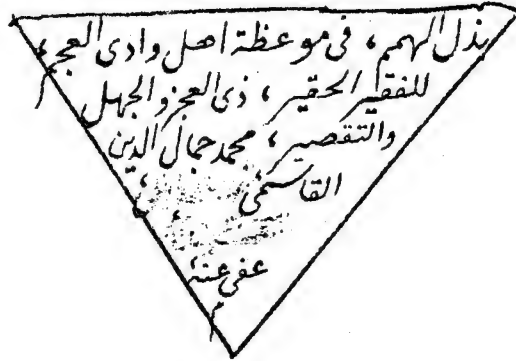 بذل الهمم، في موعظة اهل وادي العجم،
للفقير الحقير، ذى العجز والجهل
والتقصير، محمد جمال الدين
القاسمى
عفى عنه
م